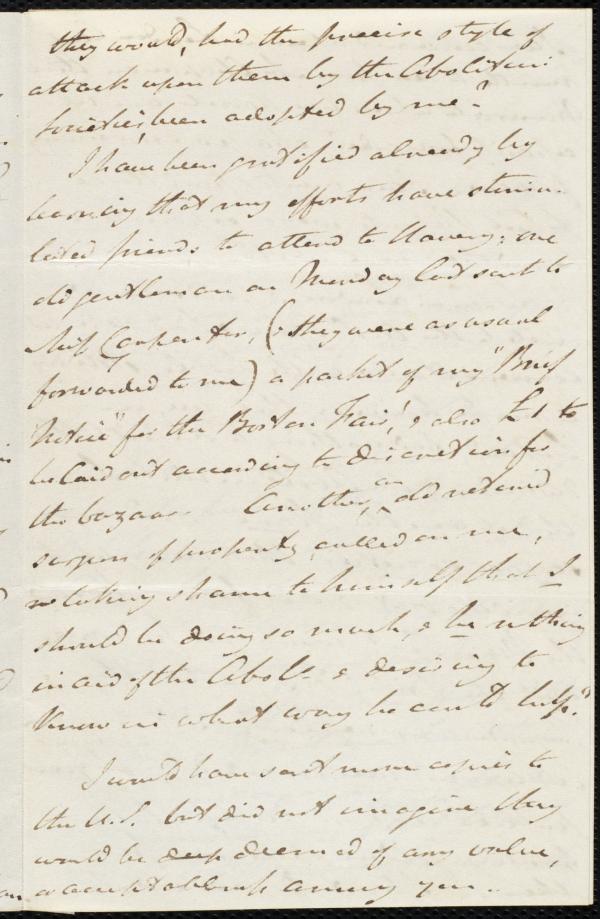 they would, had the precise style of
attack upon them by the Abolition
Societies, been adopted by me?
I have been gratified already by
learning that my efforts have stimu-
lated friends to attend to Slavery; one
old gentleman on Monday last sent to
Miss Carpenter, (& they were as usual
forwarded to me) a packet of my "Brief
Notice" for the Boston Fair, & also £1 to
be laid out according to discretion for
the bazaar. Another, an old retired
surgeon of property called on me,
taking shame to himself that I
should be doing so much, & he nothing
in aid of the Abols- & desiring to
know in what way he could help."
I would have sent more copies to
the U.S. but did not imagine they
would be deemed of any value,
or acceptableness among you..